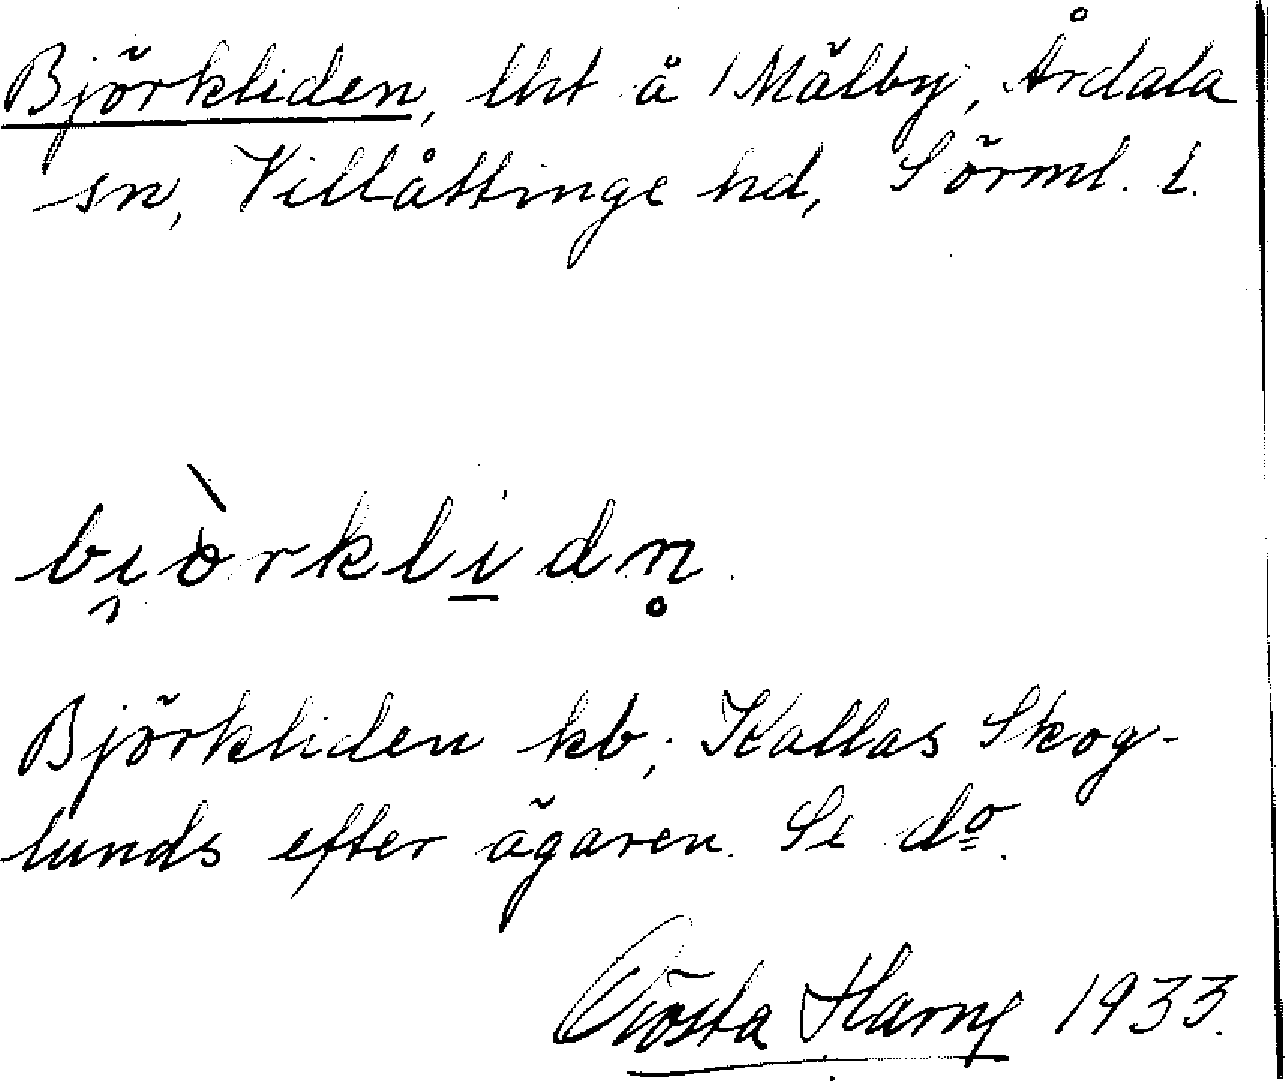 Björkliden, lht å 1 Mälby, Årdala
sn, Villåttinge hd, Sörml. l.
bi̯òrklidn̥
Björkliden kb; Kallas Skog-
lunds efter ägaren. Se dº.
Gösta 1933.